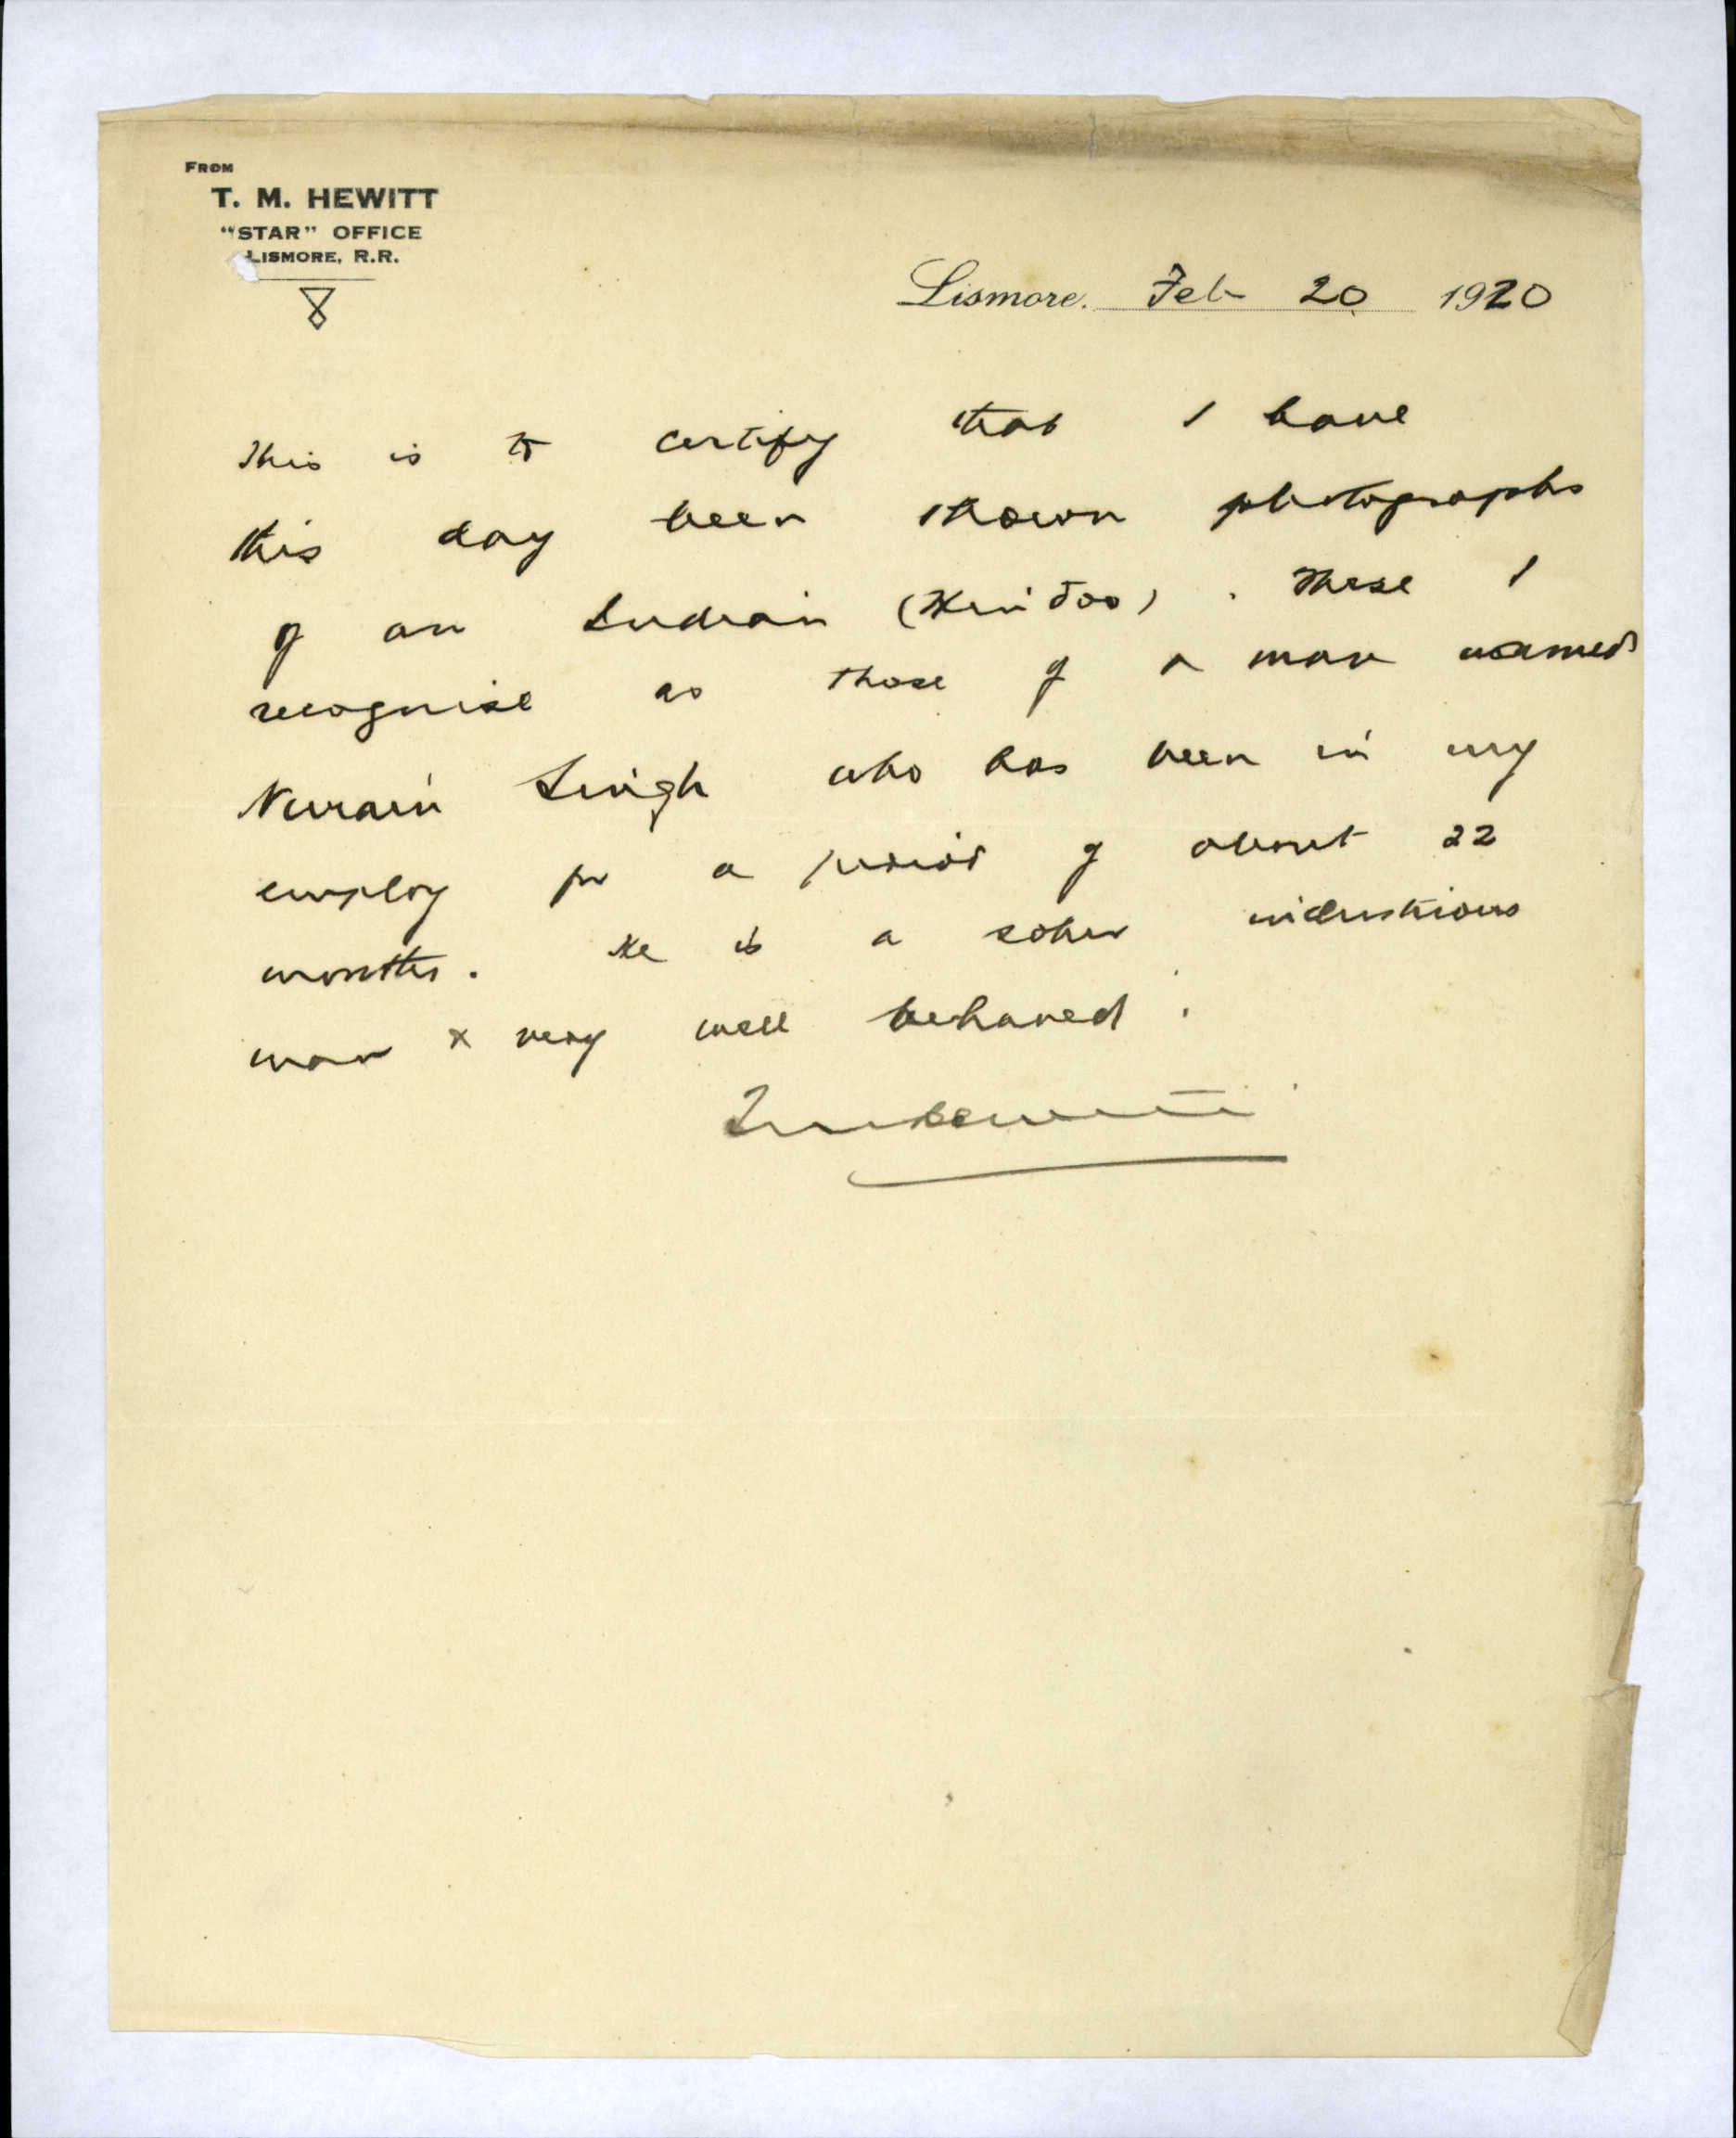 FROM
T. M. HEWITT
"STAR" OFFICE
LISMORE, R.R.
Lismore. Feb 20 1920
This is to certify that I have
this day been shown photographs
of an Indian (Hindoo). These I
recognise as those of a man named
Nurain Singh who has been in my
employ for a period of about 22
months. He is a sober industrious
man & very well behaved.
TM Hewitt